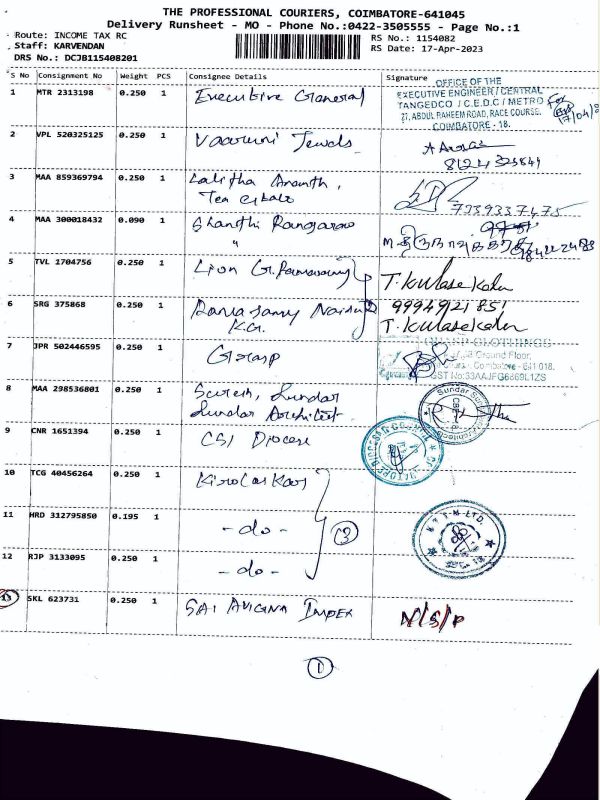 THE PROFESSIONAL COURIERS, COIMBATORE-641045
Delivery Runsheet - MO - Phone No.:0422-3505555 - Page No.:1
Route: INCOME TAX RC
Staff: KARVENDAN
DRS No.: DCJB115408201
RS No.: 1154082
RS Date: 17-Apr-2023
S No Consignment No Weight PCS Consignee Details Signature
OFFICE OF THE
EXECUTIVE ENGINEER / CENTRAL
TANGEDCO / C.E.D.C / METRO
27, ABDUL RAHEEM ROAD, RACE COURSE,
COIMBATORE - 18.
1 MTR 2313198 0.250 1 Executive General
2 VPL 520325125 0.250 1 Vaaruni Jewels
3 MAA 859369794 0.250 1 Lalitha Ananth,
Tea
7339337475
4 MAA 300018432 0.090 1 Shanthi Rangarao
"
5 TVL 1704756 0.250 1 Lion G.
T. Kulasekaran
6 SRG 375868 0.250 1 Ramasamy Naidu
K.G.
T. Kulasekaran
7 JPR 502446595 0.250 1 Grasp
CLOTHINGS
Ground Floor,
Coimbatore - 641 018.
GST No:33AAJFG6869L1ZS
8 MAA 298536801 0.250 1 Suresh, Sundar
Sundar Architect
9 CNR 1651394 0.250 1 CSI Diocese
10 TCG 40456264 0.250 1 Kirloskar
11 HRD 312795850 0.195 1 - do -
(3)
12 RJP 3133095 0.250 1 - do -
13 SKL 623731 0.250 1 SAI AVIGNA IMPEX N/S/P
1